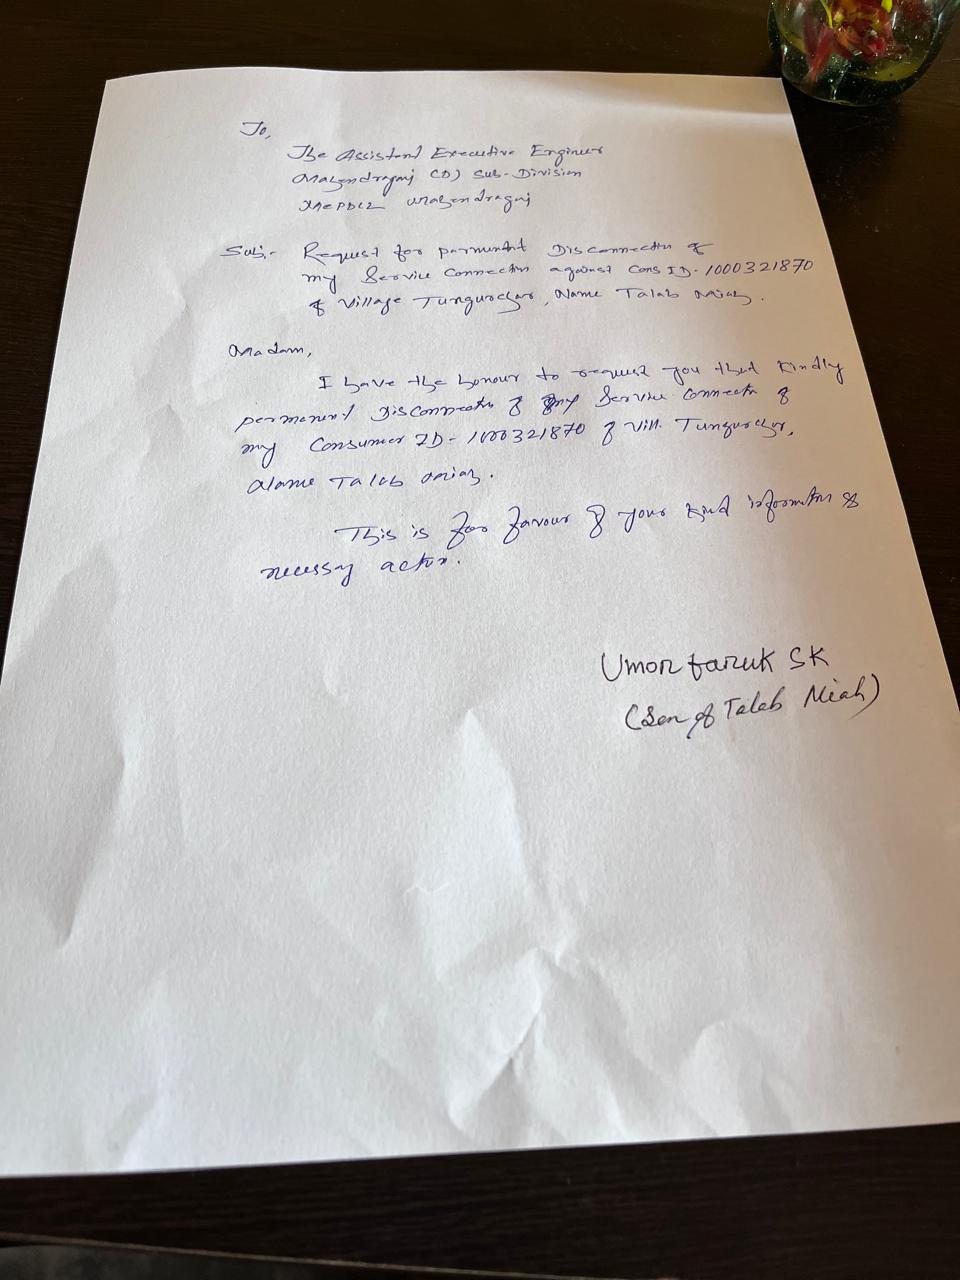 To,
The Assistant Executive Engineer
Mahendraganj (D) Sub-Division
MePDCL Mahendraganj
Sub:- Request for parmundnt Disconnectin of
my Service Connectin against Cons ID-1000321870
of Village Tungurchar, Name Talab Miah.
Madam,
I have the honour to request you that kindly
permanent Disconnectn of my Service Connectn of
my Consumer ID-1000321870 of Vill. Tungurchar,
Name Taleb Miah.
This is for favour of your kind informatin &
necessay actin.
Umor faruk SK
(Son of Taleb Miah)